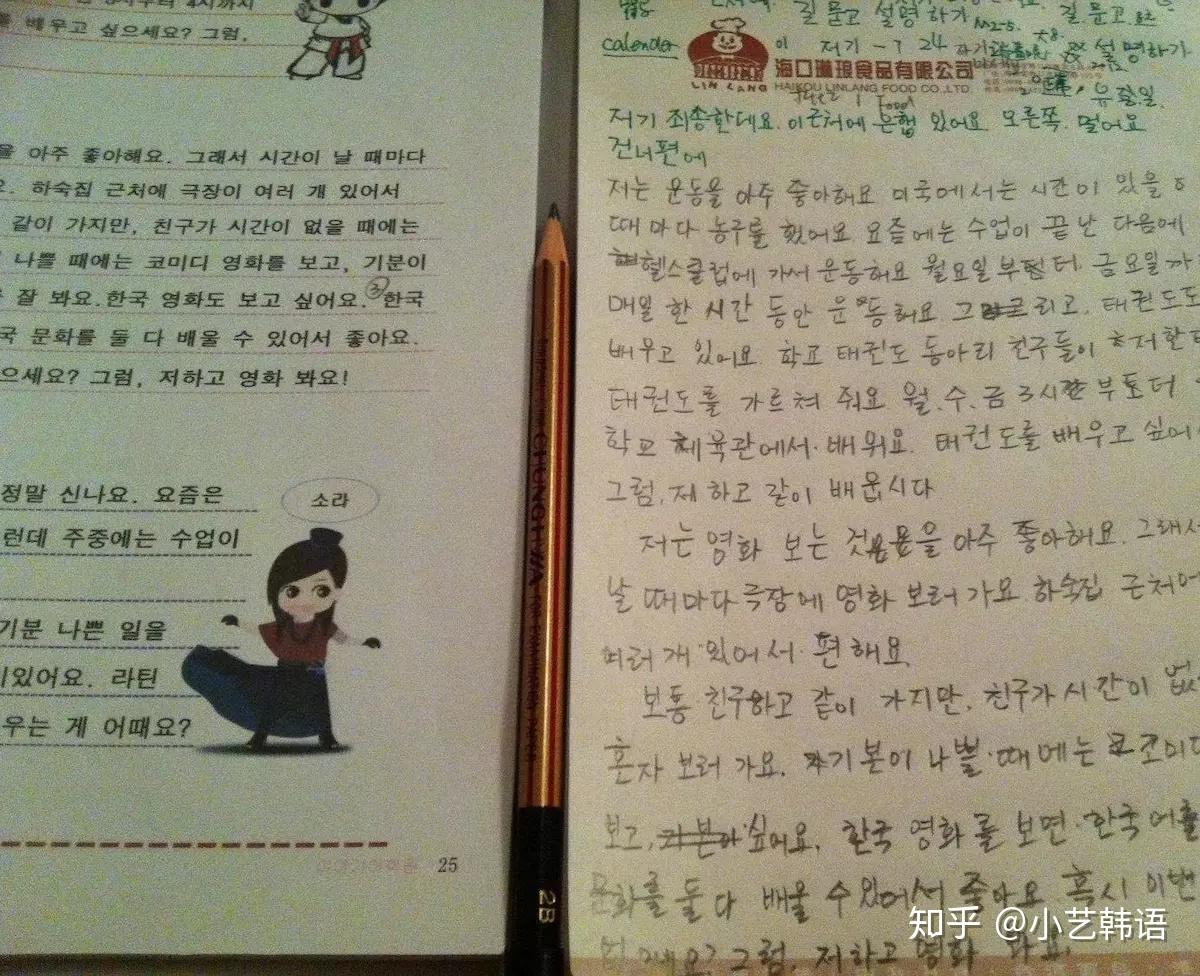 배우고 싶으세요? 그럼,
을 아주 좋아해요. 그래서 시간이 날 때마다
요. 하숙집 근처에 극장이 여러 개 있어서
같이 가지만, 친구가 시간이 없을 때에는
나쁠 때에는 코미디 영화를 보고, 기분이
잘 봐요. 한국 영화도 보고 싶어요. 한국
국 문화를 둘 다 배울 수 있어서 좋아요.
으세요? 그럼, 저하고 영화 봐요!
정말 신나요. 요즘은
런데 주중에는 수업이
기분 나쁜 일을
있어요. 라틴
우는 게 어때요?
소라
25
CHUNGHWA
2B
길 묻고 설명하기
calender
설명하기
海口琳琅食品有限公司
LIN LANG
HAIKOU LINLANG FOOD CO.,LTD.
food
저기 죄송한데요. 이 근처에 은행 있어요 오른쪽. 멀어요
건너편에
저는 운동을 아주 좋아해요 미국에서는 시간이 있을
때마다 농구를 했어요 요즘에는 수업이 끝난 다음에
헬스클럽에 가서 운동해요 월요일부터 금요일까
매일 한 시간 동안 운동해요 그리고. 태권도도
배우고 있어요. 학교 태권도 동아리 친구들이 저한테
태권도를 가르쳐 줘요 월.수.금 3시간부터
학교 체육관에서 배워요. 태권도를 배우고 싶어
그럼, 저하고 같이 배웁시다
저는 영화 보는 것을 아주 좋아해요. 그래서
날 때마다 극장에 영화 보러 가요 하숙집 근처에
여러 개 있어서 편해요
보통 친구하고 같이 가지만, 친구가 시간이 없
혼자 보러 가요. 기분이 나쁠 때에는 코미디
보고, 싶어요. 한국 영화를 보면 한국어를
문화를 둘 다 배울 수 있어서 좋아요 혹시 이번
그럼, 저하고 영화 봐요.
知乎 @小艺韩语